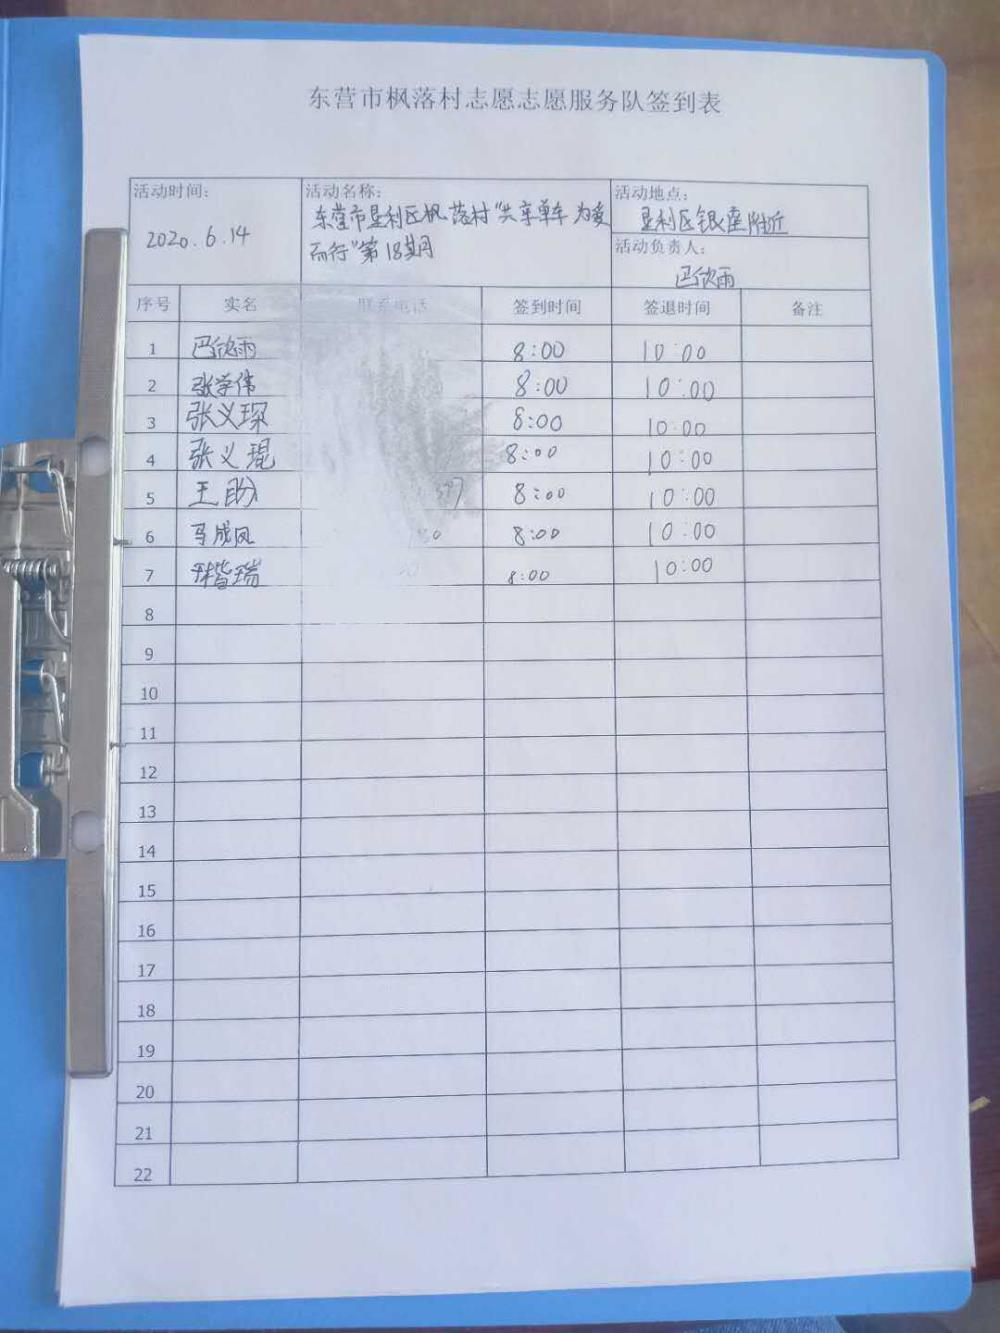 东营市枫落村志愿志愿服务队签到表
活动时间: 活动名称: 活动地点:
2020.6.14 东营市垦利区枫落村"共享单车 为爱 垦利区银座附近
而行"第18期 活动负责人:
巴欣雨
序号 实名 联系电话 签到时间 签退时间 备注
1 巴欣雨 8:00 10:00
2 张学伟 8:00 10:00
3 张义琛 8:00 10:00
4 张义琨 8:00 10:00
5 王盼 8:00 10:00
6 马成凤 8:00 10:00
7 8:00 10:00
8
9
10
11
12
13
14
15
16
17
18
19
20
21
22